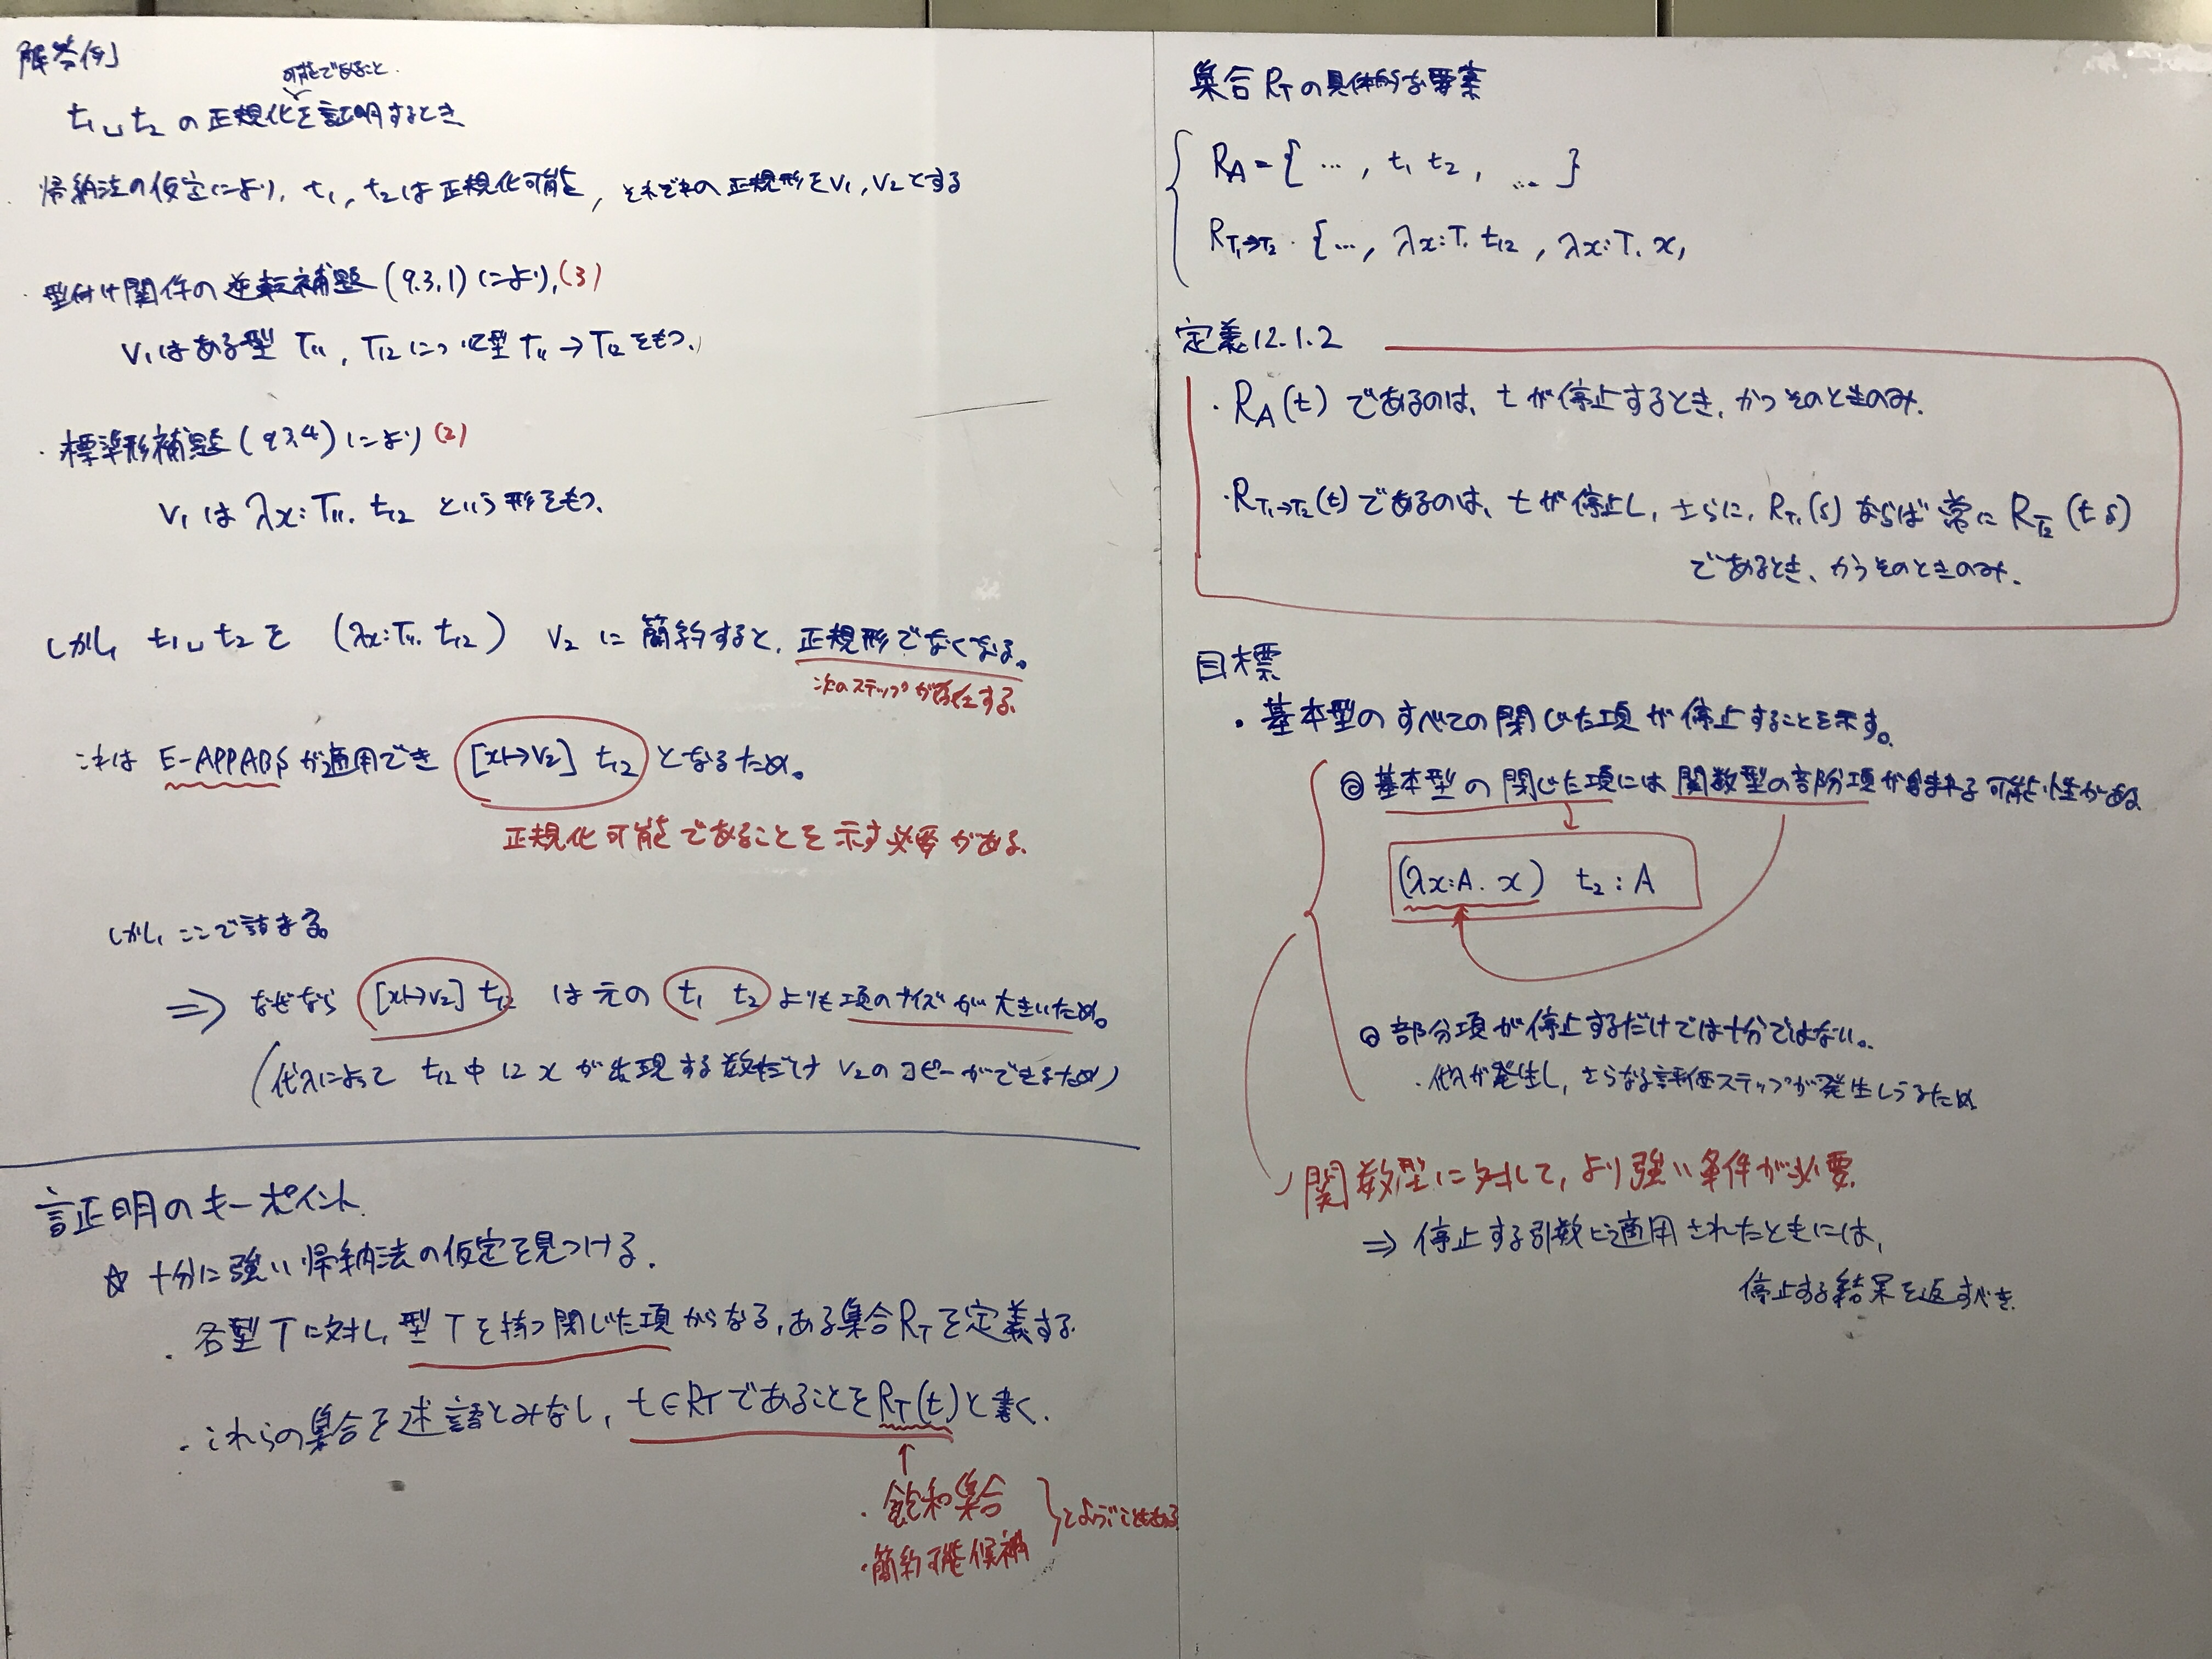 解答例
可能であること.
t₁␣t₂ の正規化を証明するとき
帰納法の仮定により, t₁, t₂は正規化可能, それぞれの正規形をv₁, v₂とする
・型付け関係の逆転補題(9.3.1)により,(3)
v₁はある型 T₁₁, T₁₂について型 T₁₁→T₁₂をもつ.
・標準形補題(9.3.4)により(2)
v₁は λx:T₁₁. t₁₂ という形をもつ.
しかし, t₁␣t₂を (λx:T₁₁. t₁₂) v₂ に簡約すると, 正規形でなくなる。
次のステップが存在する.
これは E-APPABSが適用でき [x↦v₂] t₁₂ となるため。
正規化可能であることを示す必要がある.
しかし, ここで詰まる。
⇒ なぜなら [x↦v₂] t₁₂ は元の t₁ t₂ よりも項のサイズが大きいため。
(代入によって t₁₂中に x が出現する数だけ v₂のコピーができるため)
証明のキーポイント
☆ 十分に強い帰納法の仮定を見つける.
・各型 T に対し, 型 T を持つ閉じた項からなる, ある集合R_Tを定義する.
・これらの集合を述語とみなし, t∈R_Tであることを R_T(t)と書く.
↑
・飽和集合
・簡約可能候補
} とよぶこともある
集合 R_T の具体的な要素
{ R_A = { …, t₁ t₂, … }
R_{T₁→T₂} { …, λx:T. t₁₂, λx:T. x,
定義12.1.2
・R_A(t) であるのは, t が停止するとき, かつそのときのみ.
・R_{T₁→T₂}(t) であるのは, t が停止し, さらに, R_{T₁}(s) ならば常に R_{T₂}(t s)
であるとき, かつそのときのみ.
目標
・基本型のすべての閉じた項が停止することを示す。
◎ 基本型の閉じた項には関数型の部分項が含まれる可能性がある
(λx:A. x) t₂ : A
◎ 部分項が停止するだけでは十分ではない。
・代入が発生し, さらなる評価ステップが発生しうるため
関数型に対して, より強い条件が必要.
⇒ 停止する引数に適用されたときには,
停止する結果を返すべき.